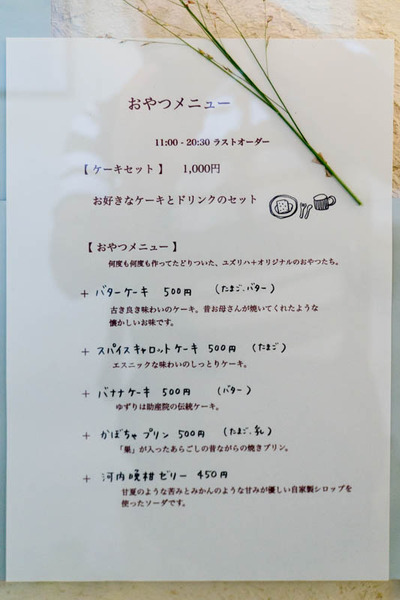 おやつメニュー
11:00 - 20:30 ラストオーダー
【 ケーキセット 】 1,000円
お好きなケーキとドリンクのセット
【 おやつメニュー 】
何度も何度も作ってたどりついた、ユズリハ+オリジナルのおやつたち。
+ バターケーキ 500円 (たまご、バター)
古き良き味わいのケーキ。昔お母さんが焼いてくれたような
懐かしいお味です。
+ スパイスキャロットケーキ 500円 (たまご)
エスニックな味わいのしっとりケーキ。
+ バナナケーキ 500円 (バター)
ゆずりは助産院の伝統ケーキ。
+ かぼちゃプリン 500円 (たまご、乳)
「巣」が入ったあらごしの昔ながらの焼きプリン。
+ 河内晩柑ゼリー 450円
甘夏のような苦みとみかんのような甘みが優しい自家製シロップを
使ったソーダです。